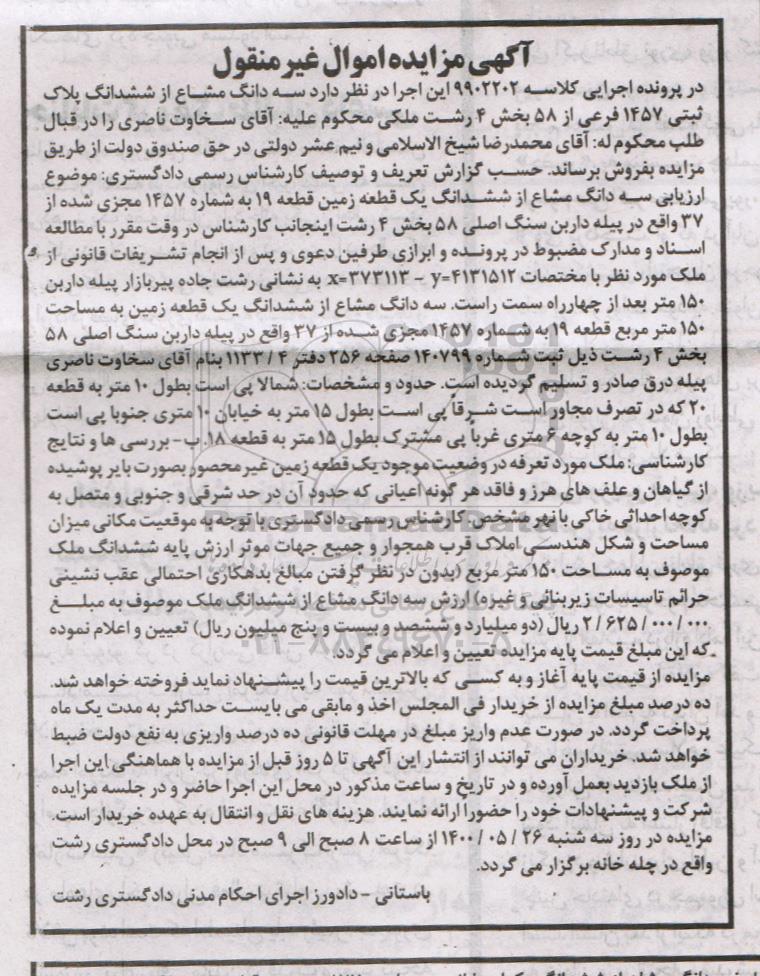 آگهی مزایده اموال غیر منقول
در پرونده اجرایی کلاسه ۹۹۰۲۲۰۲ این اجرا در نظر دارد سه دانگ مشاع از ششدانگ پلاک
ثبتی ۱۴۵۷ فرعی از ۵۸ بخش ۴ رشت ملکی محکوم علیه: آقای سخاوت ناصری را در قبال
طلب محکوم له: آقای محمدرضا شیخ الاسلامی و نیم عشر دولتی در حق صندوق دولت از طریق
مزایده بفروش برساند. حسب گزارش تعریف و توصیف کارشناس رسمی دادگستری: موضوع
ارزیابی سه دانگ مشاع از ششدانگ یک قطعه زمین قطعه ۱۹ به شماره ۱۴۵۷ مجزی شده از
۳۷ واقع در پیله داربن سنگ اصلی ۵۸ بخش ۴ رشت اینجانب کارشناس در وقت مقرر با مطالعه
اسناد و مدارک مضبوط در پرونده و ابرازی طرفین دعوی و پس از انجام تشریفات قانونی از
ملک مورد نظر با مختصات x=۳۷۳۱۱۳ - y=۴۱۳۱۵۱۲ به نشانی رشت جاده پیربازار پیله داربن
۱۵۰ متر بعد از چهارراه سمت راست. سه دانگ مشاع از ششدانگ یک قطعه زمین به مساحت
۱۵۰ متر مربع قطعه ۱۹ به شماره ۱۴۵۷ مجزی شده از ۳۷ واقع در پیله داربن سنگ اصلی ۵۸
بخش ۴ رشت ذیل ثبت شماره ۱۴۰۷۹۹ صفحه ۲۵۶ دفتر ۴ / ۱۱۳۳ بنام آقای سخاوت ناصری
پیله درق صادر و تسلیم گردیده است. حدود و مشخصات: شمالا پی است بطول ۱۰ متر به قطعه
۲۰ که در تصرف مجاور است شرقاً پی است بطول ۱۵ متر به خیابان ۱۰ متری جنوبا پی است
بطول ۱۰ متر به کوچه ۶ متری غرباً پی مشترک بطول ۱۵ متر به قطعه ۱۸. ب- بررسی ها و نتایج
کارشناسی: ملک مورد تعرفه در وضعیت موجود یک قطعه زمین غیر محصور بصورت بایر پوشیده
از گیاهان و علف های هرز و فاقد هر گونه اعیانی که حدود آن در حد شرقی و جنوبی و متصل به
کوچه احداثی خاکی با نهر مشخص. کارشناس رسمی دادگستری با توجه به موقعیت مکانی میزان
مساحت و شکل هندسی املاک قرب همجوار و جمیع جهات موثر ارزش پایه ششدانگ ملک
موصوف به مساحت ۱۵۰ متر مربع (بدون در نظر گرفتن مبالغ بدهکاری احتمالی عقب نشینی
جرائم تاسیسات زیربنائی و غیره) ارزش سه دانگ مشاع از ششدانگ ملک موصوف به مبلغ
۲/۶۲۵/۰۰۰/۰۰۰ ریال (دو میلیارد و ششصد و بیست و پنج میلیون ریال) تعیین و اعلام نموده
که این مبلغ قیمت پایه مزایده تعیین و اعلام می گردد.
مزایده از قیمت پایه آغاز و به کسی که بالاترین قیمت را پیشنهاد نماید فروخته خواهد شد.
ده درصد مبلغ مزایده از خریدار فی المجلس اخذ و مابقی می بایست حداکثر به مدت یک ماه
پرداخت گردد. در صورت عدم واریز مبلغ در مهلت قانونی ده درصد واریزی به نفع دولت ضبط
خواهد شد. خریداران می توانند از انتشار این آگهی تا ۵ روز قبل از مزایده با هماهنگی این اجرا
از ملک بازدید بعمل آورده و در تاریخ و ساعت مذکور در محل این اجرا حاضر و در جلسه مزایده
شرکت و پیشنهادات خود را حضورا ارائه نمایند. هزینه های نقل و انتقال به عهده خریدار است.
مزایده در روز سه شنبه ۲۶ / ۰۵ / ۱۴۰۰ از ساعت ۸ صبح الی ۹ صبح در محل دادگستری رشت
واقع در چله خانه برگزار می گردد.
باستانی - دادورز اجرای احکام مدنی دادگستری رشت